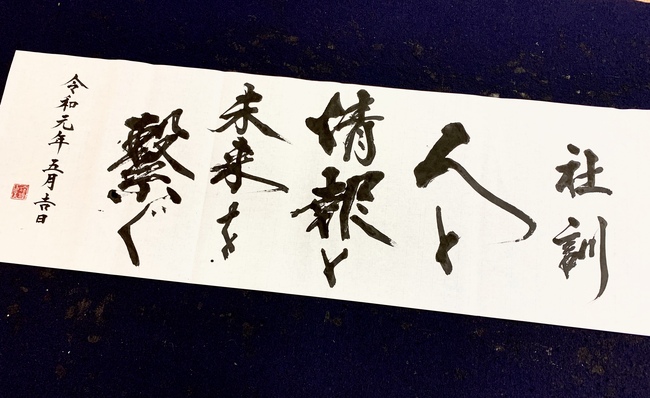 社訓
人と
情報と
未来を
繋ぐ
令和元年五月吉日